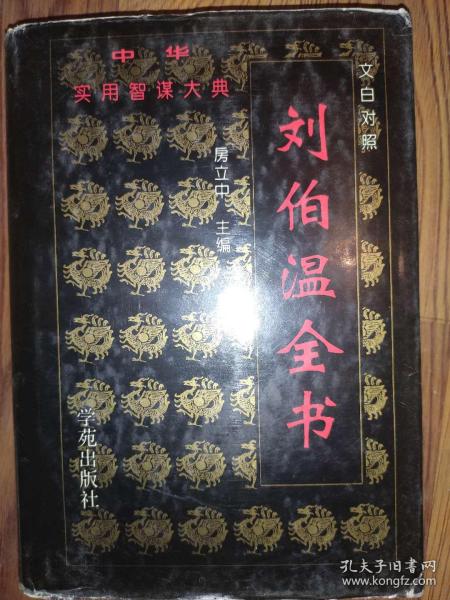 中华
实用智谋大典
文白对照
刘伯温全书
房立中 主编
学苑出版社
孔夫子旧书网
www.kongfz.com